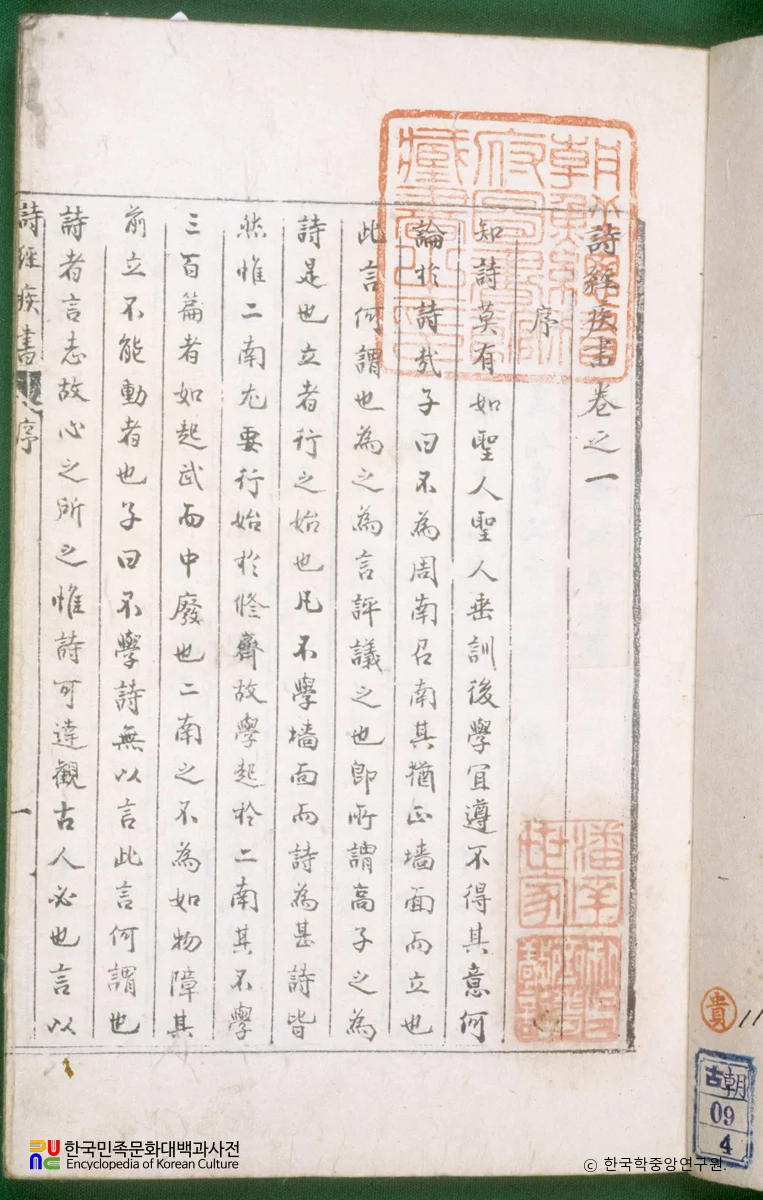 詩經疾書卷之一
序
知詩莫有如聖人聖人垂訓後學冝遵不得其意何
論於詩㢤子曰不為周南召南其猶正墻面而立也
此言何謂也為之為言評議之也卽所謂高子之為
詩是也立者行之始也凡不學墻面而詩為甚詩皆
然惟二南尤要行始於修齊故學起於二南其不學
三百篇者如起武而中廢也二南之不為如物障其
前立不能動者也子曰不學詩無以言此言何謂也
詩者言志故心之所之惟詩可達觀古人必也言以
詩經疾書 序 一
朝鮮總督府圖書館藏書之印
貴
11
古朝
09
4
한국민족문화대백과사전
Encyclopedia of Korean Culture
© 한국학중앙연구원